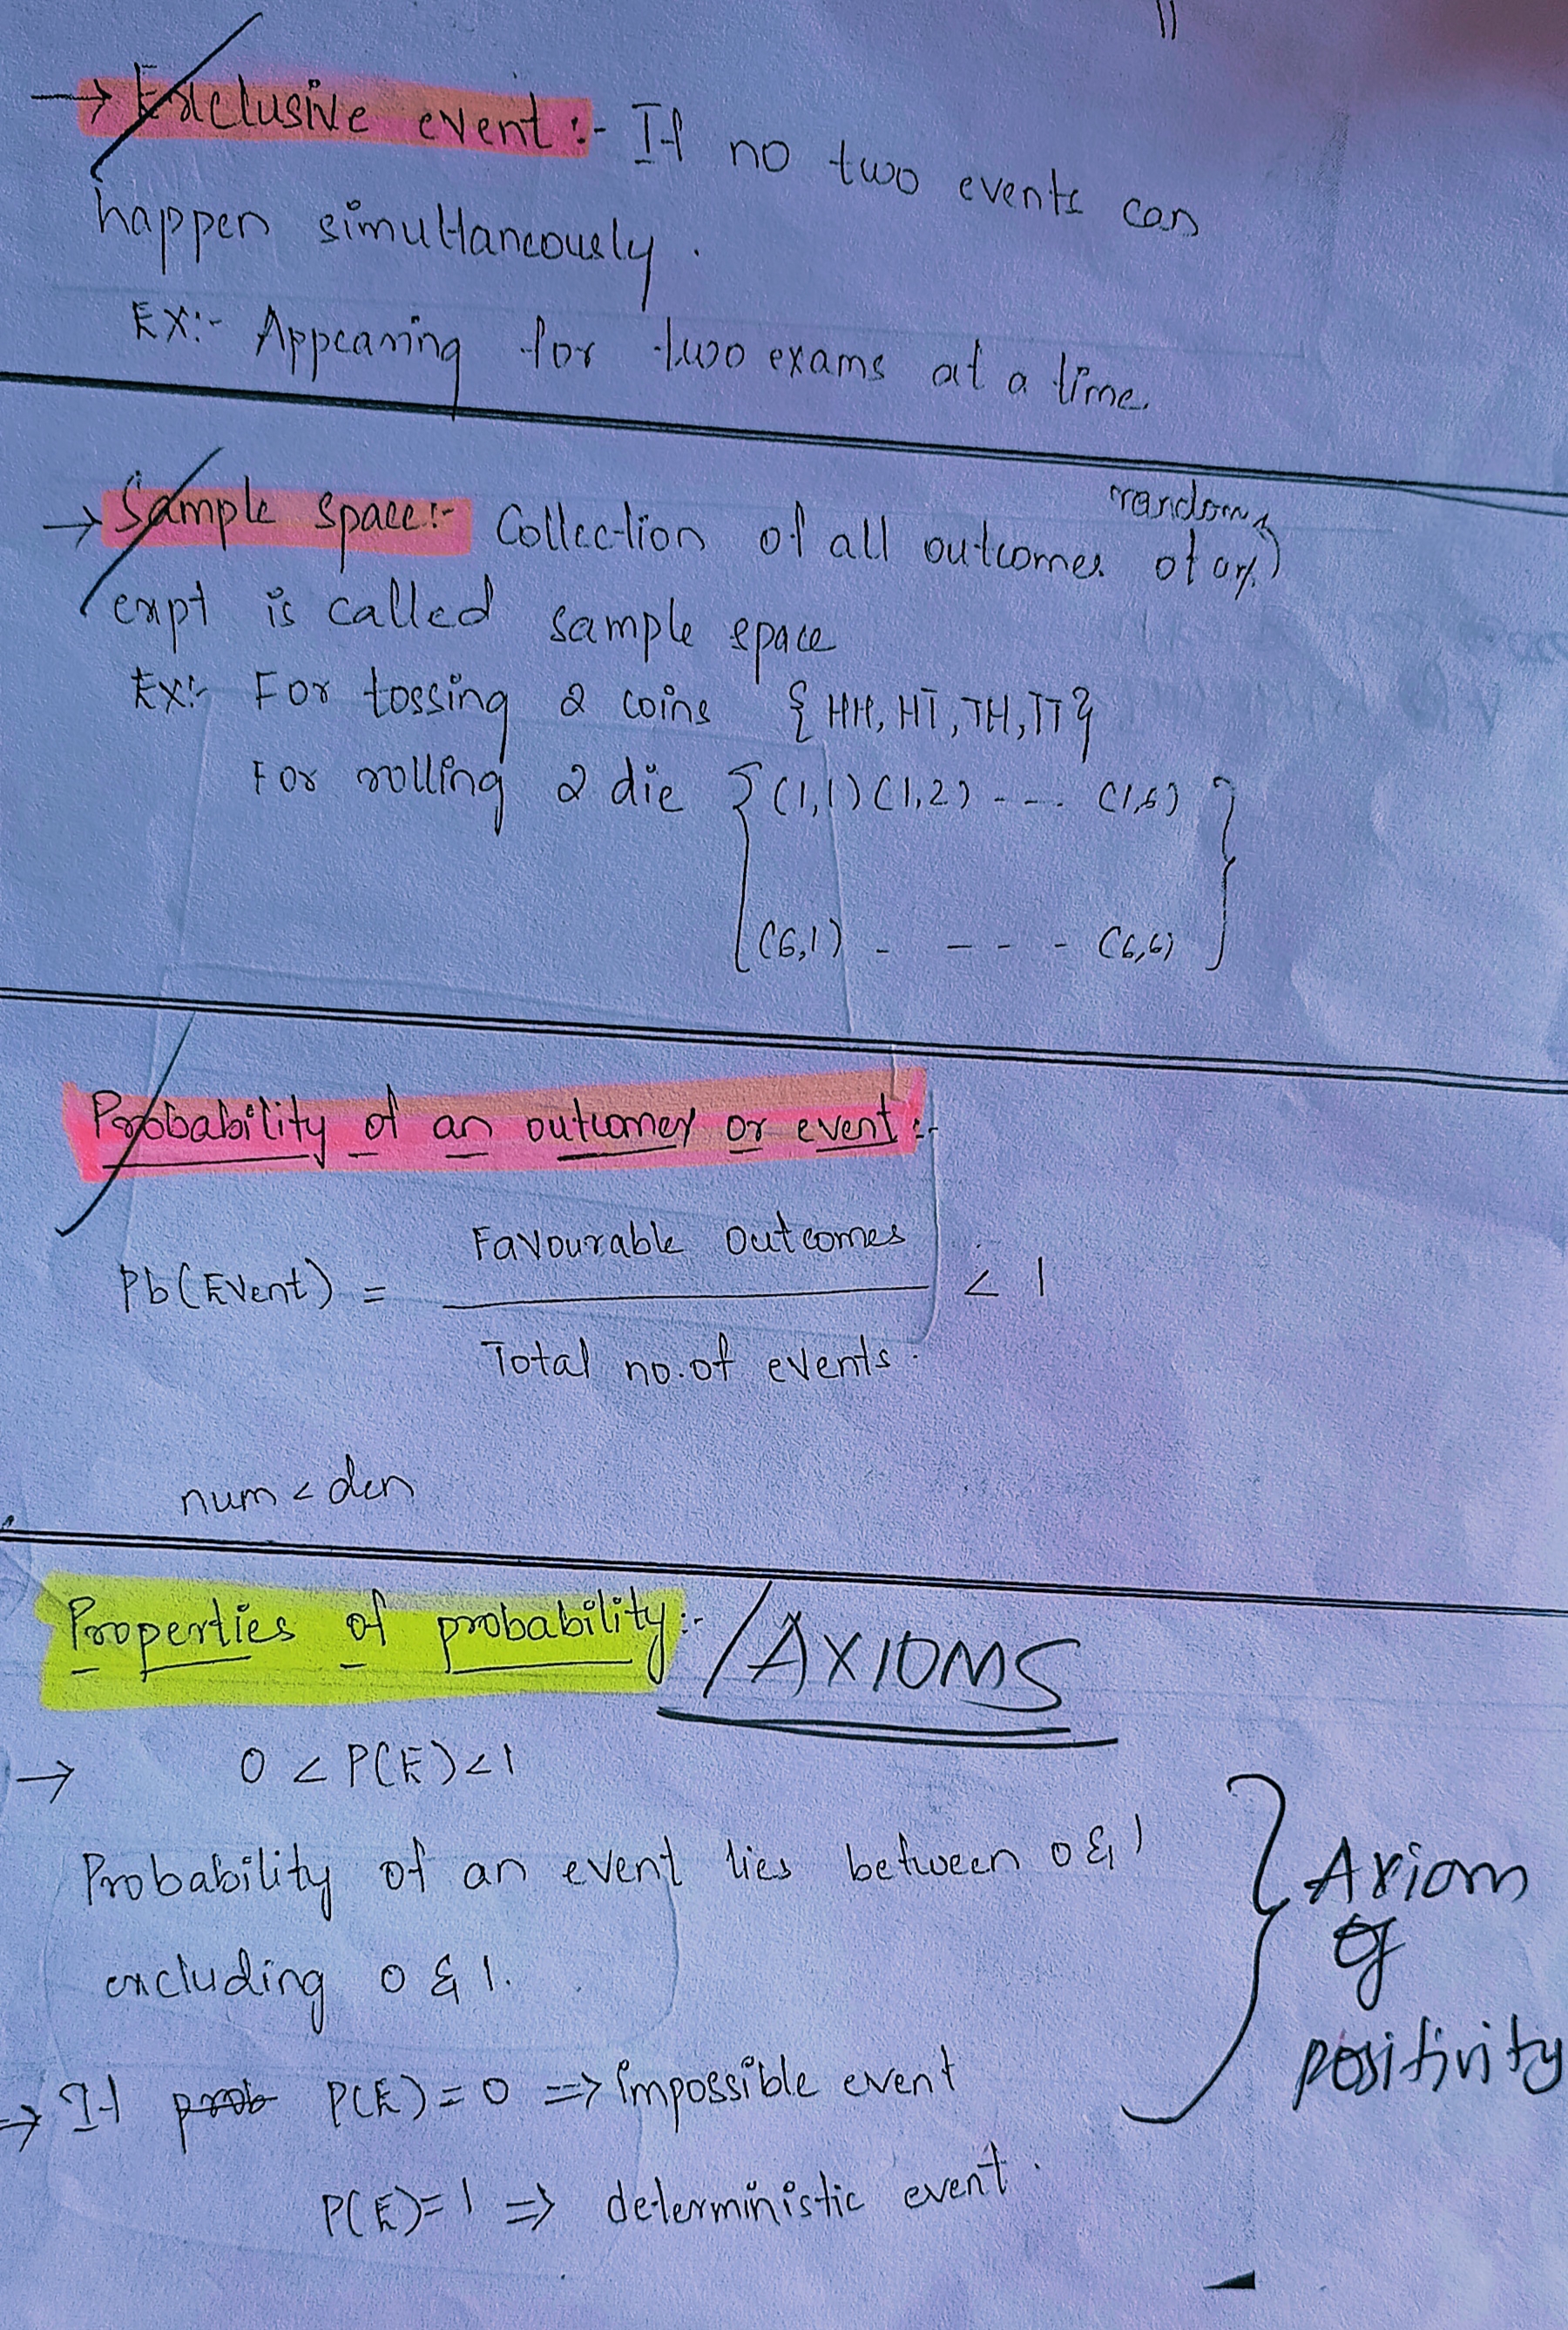 11
→ Exclusive event :- If no two events can
happen simultaneously.
EX:- Appearing for two exams at a time.
random
→ Sample space:- Collection of all outcomes of any
expt is called sample space
Ex:- For tossing 2 coins {HH, HT, TH, TT}
For rolling 2 die {(1,1) (1,2) - - - (1,6)
(6,1) - - - - (6,6)}
Probability of an outcomes or event :-
Favourable outcomes
Pb(Event) = < 1
Total no. of events.
num < den
Properties of probability :- / AXIOMS
→ 0 < P(E) < 1
Probability of an event lies between 0 & 1
excluding 0 & 1.
Axiom
of
positivity
→ If prob P(E) = 0 => impossible event
P(E) = 1 => deterministic event.